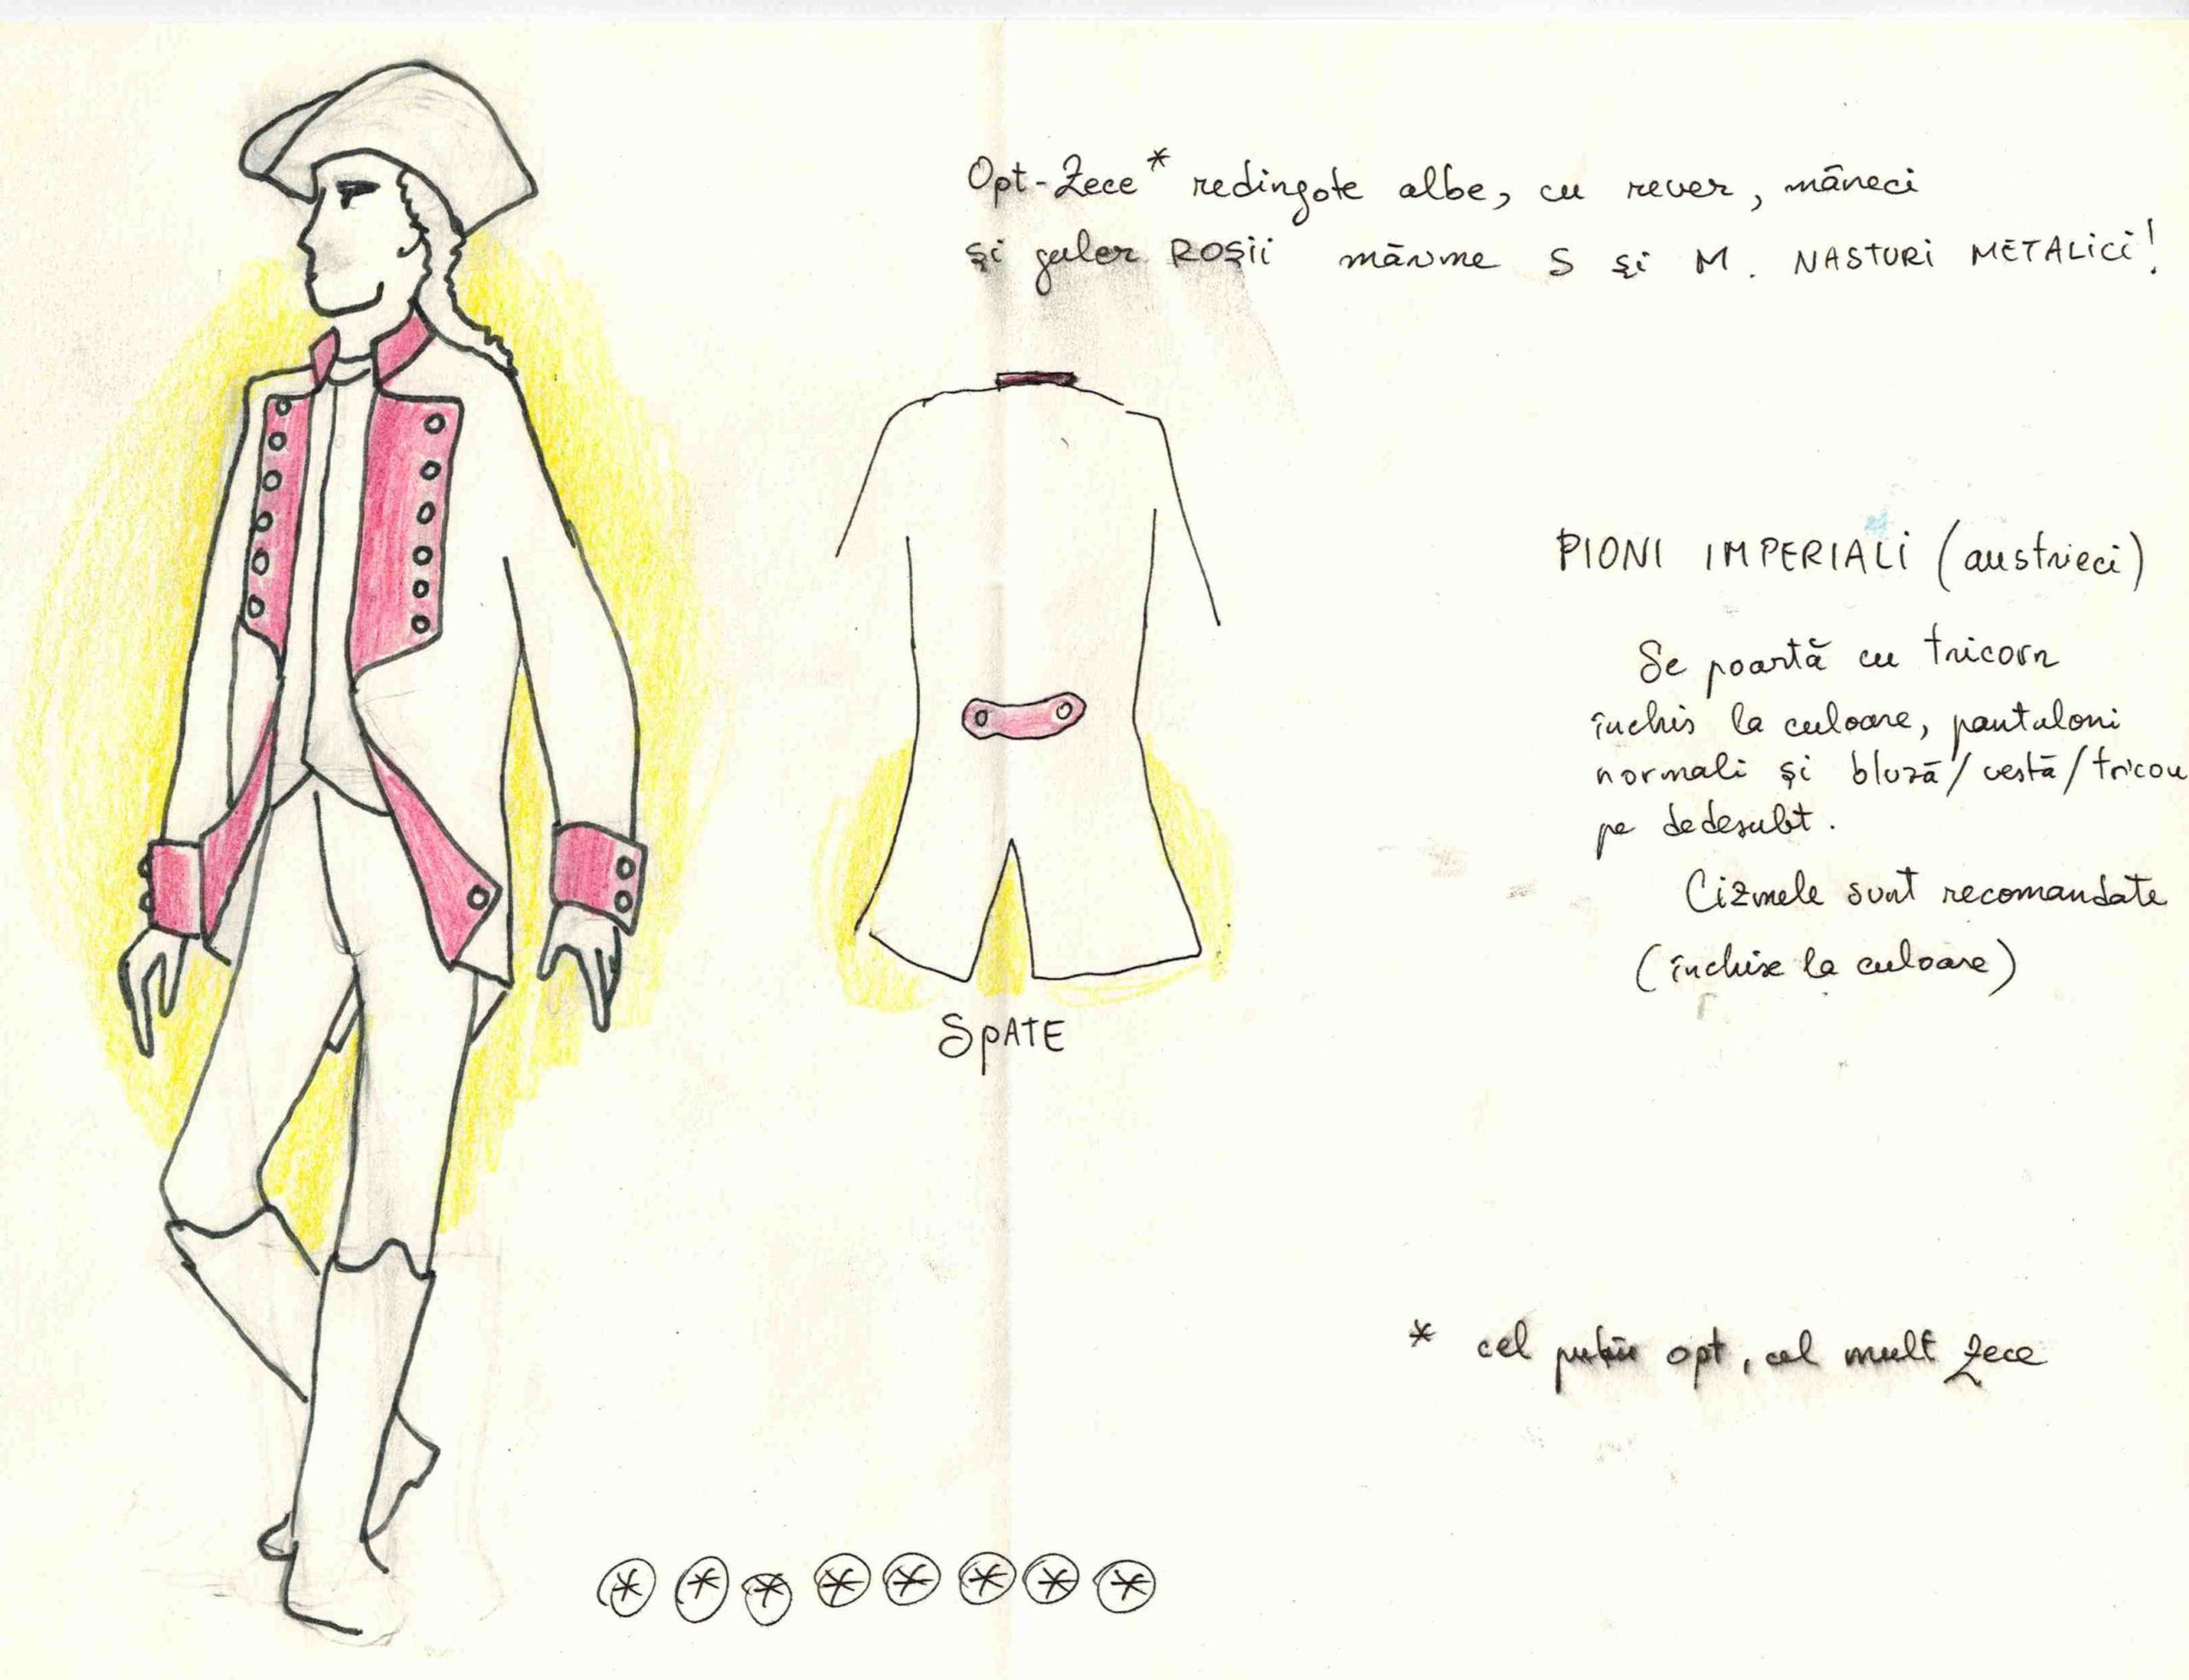 Opt-Zece* redingote albe, cu rever, mâneci
și guler ROȘII mărime S și M. NASTURI METALICI!
PIONI IMPERIALI (austrieci)
Se poartă cu tricorn
închis la culoare, pantaloni
normali și bluză/vestă/tricou
pe dedesubt.
Cizmele sunt recomandate
(închise la culoare)
SPATE
* cel puțin opt, cel mult zece